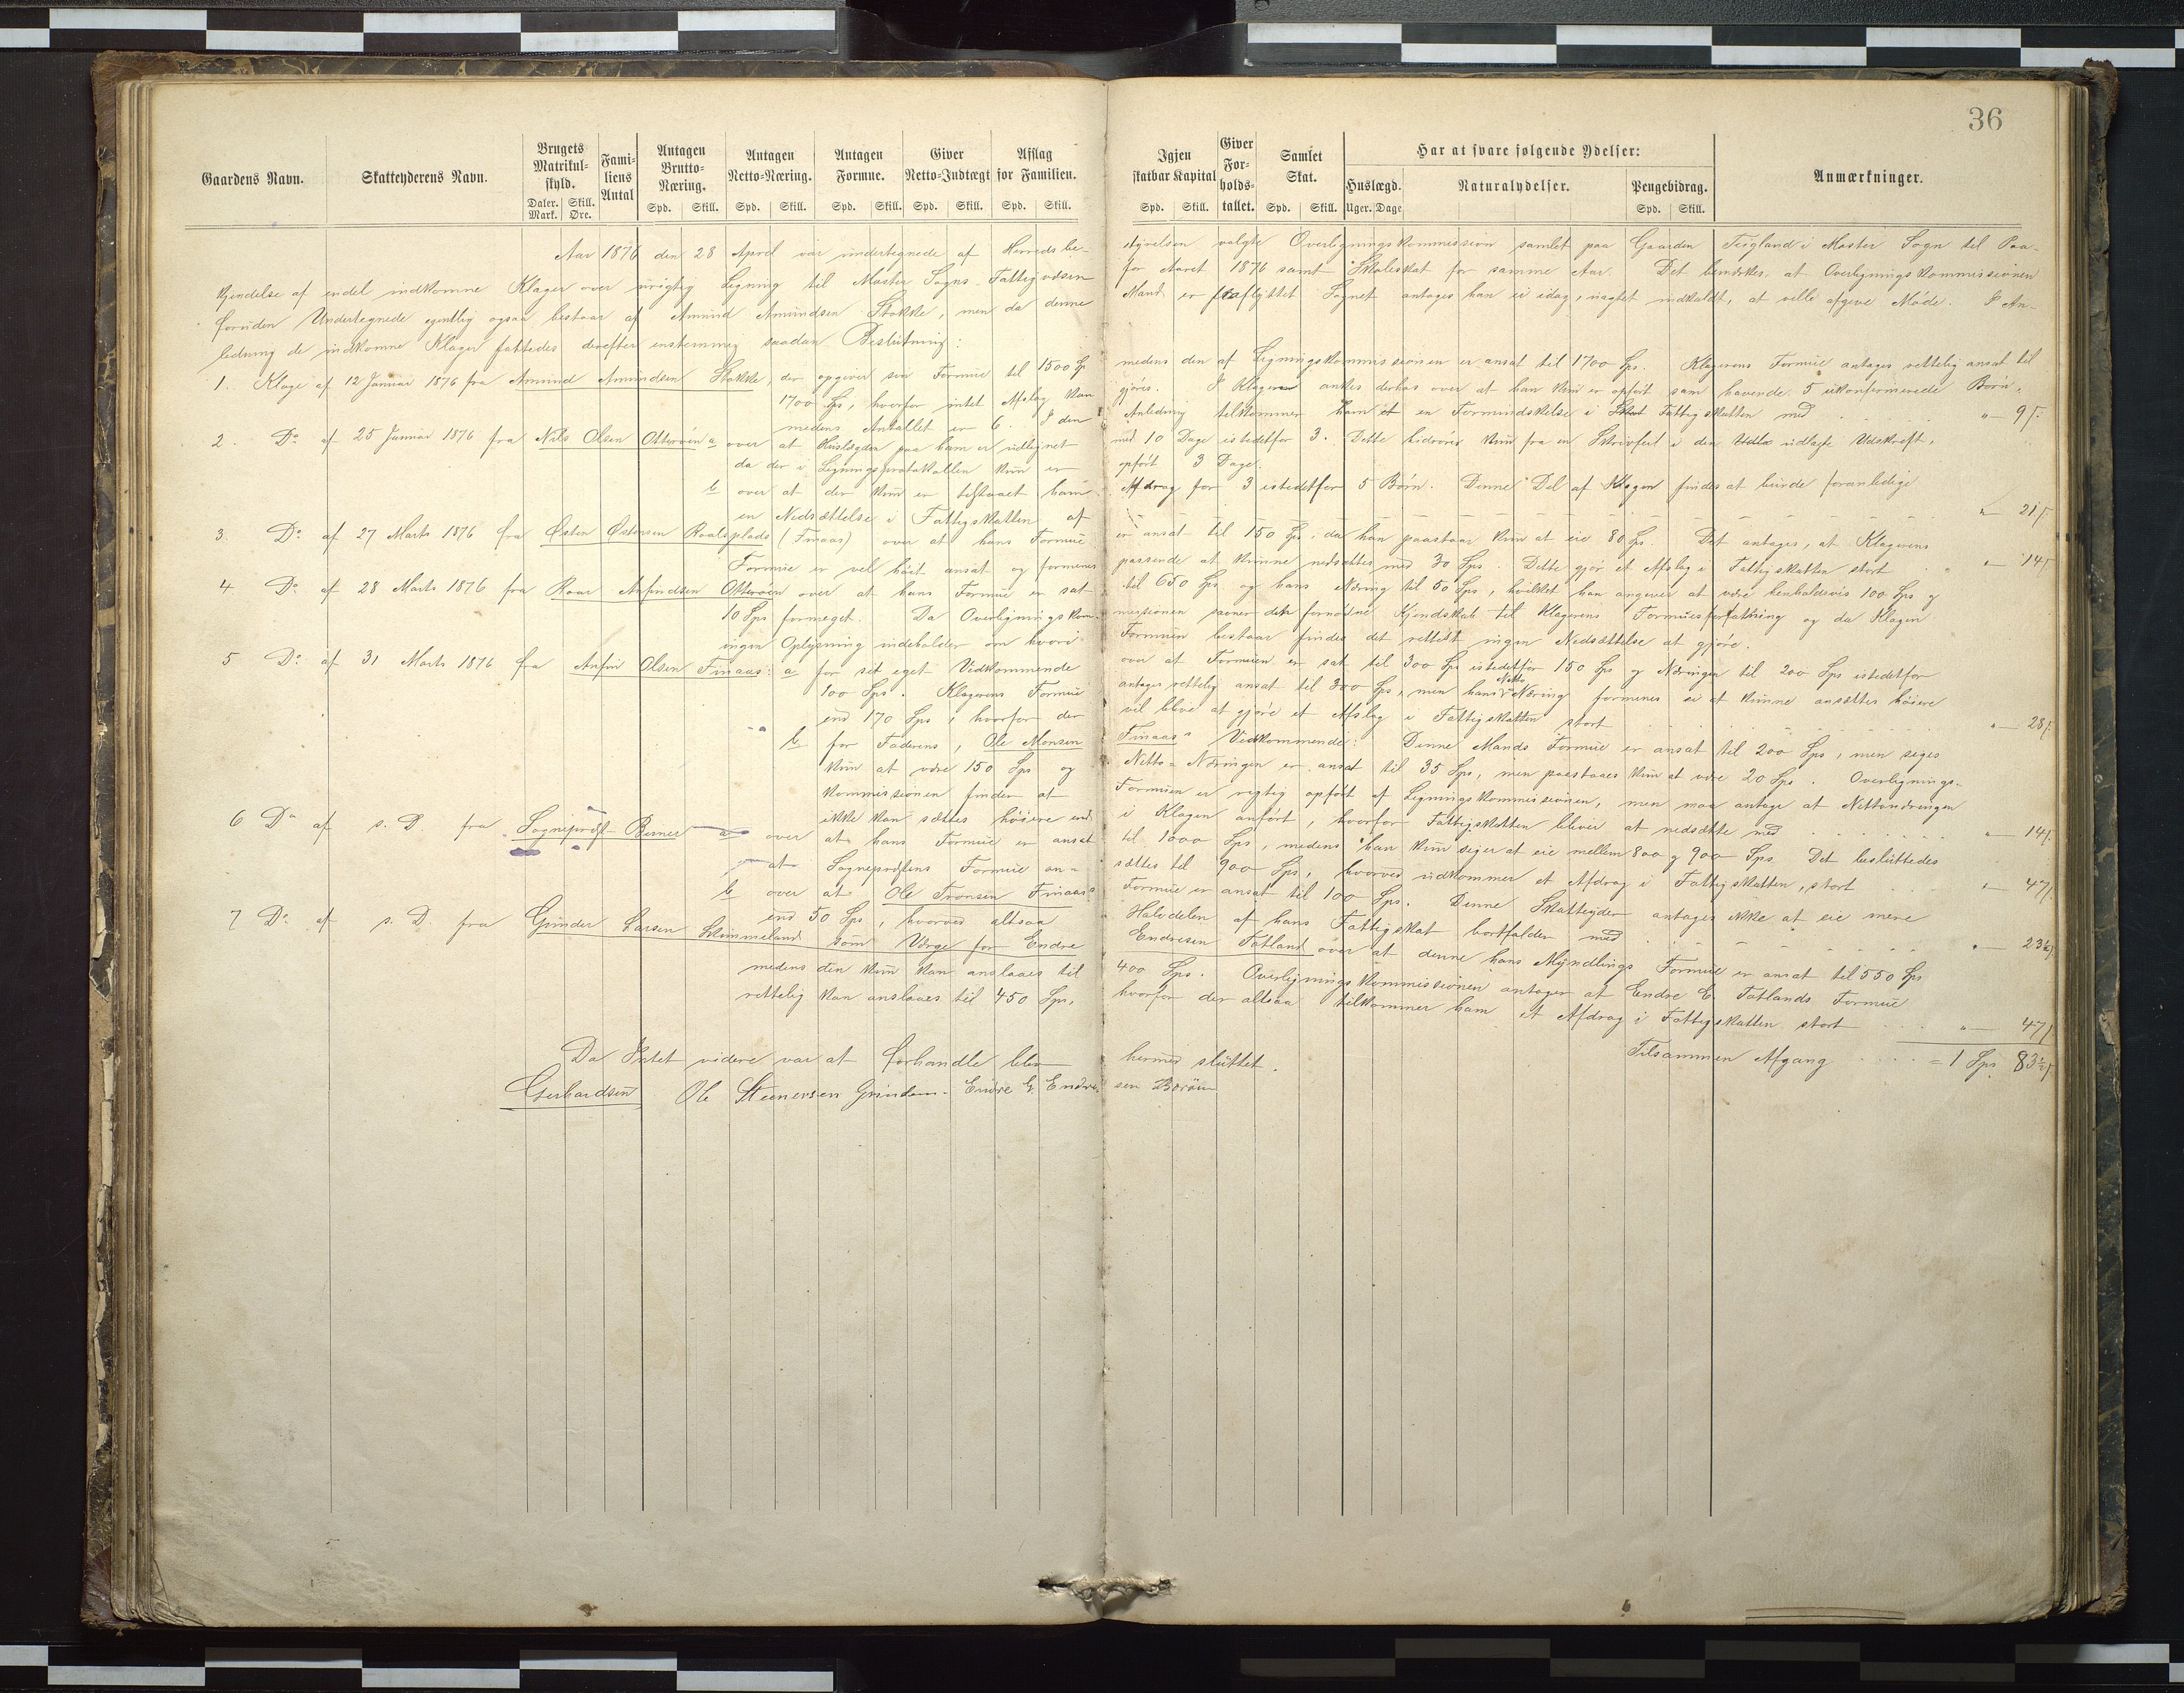 36
Gaardens Navn. Skatteyderens Navn. Brugets Matrikul-skyld. Daler. Mark. Skill. Øre. Fami-liens Antal Antagen Brutto-Næring. Spd. Skill. Antagen Netto-Næring. Spd. Skill. Antagen Formue. Spd. Skill. Giver Netto-Indtægt Spd. Skill. Afslag for Familien. Spd. Skill. Igjen skatbar Kapital Spd. Skill. Giver For-holds-tallet. Samlet Skat. Spd. Skill. Har at svare følgende Ydelser: Huslægd. Uger. Dage Naturalydelser. Pengebidrag. Spd. Skill. Anmærkninger.
Aar 1876 den 28 April var undertegnede af Herredsbe-styrelsen valgte Overligningskommission samlet paa Gaarden Teigland i Moster Sogn til Paa-
kjendelse af endel indkomne Klager over urigtig Ligning til Moster Sogns Fattigvæsen for Aaret 1876 samt Skoleskat for samme Aar. Det bemærkes, at Overligningskommissionen
foruden Undertegnede egentlig ogsaa bestaar af Amund Amundsen Stokke, men da denne Mand er fraflyttet Sognet antages han ei idag, uagtet indkaldt, at ville afgive Møde. I An-
ledning de indkomne Klager fattedes derefter enstemmig saadan Beslutning:
1. Klage af 12 Januar 1876 fra Amund Amundsen Stokke, der opgiver sin Formue til 1500 Sp medens den af Ligningskommissionen er ansat til 1700 Sps. Klagerens Formue antages rettelig ansat til
1700 Sps, hvorfor intet Afslag kan gjøres. I Klagen ankes derhos over at han kun er opført som havende 5 ukonfirmerede Børn,
medens Antallet er 6. I den Anledning tilkommer ham et en Formindskelse i Skat Fattigskatten med " — 9 f.
2. Do af 25 Januar 1876 fra Nils Olsen Otterøen a over at Huslægden paa ham er udlignet med 10 Dage istedetfor 3. Dette hidrører kun fra en Skrivfeil i den Udla udlagte Udskrift,
da der i Ligningsprotokollen kun er opført 3 Dage.
b over at der kun er tilstaaet ham Afdrag for 3 istedetfor 5 Børn. Denne Del af Klagen findes at burde foranledige
en Nedsættelse i Fattigskatten af " — 21 f.
3. Do af 27 Marts 1876 fra Østen Østensen Roalsplads (Finaas) over at hans Formue er ansat til 150 Sps, da han paastaar kun at eie 80 Sps. Det antages, at Klagerens
Formue er vel høit ansat og formenes passende at kunne nedsættes med 30 Sps. Dette gjør et Afslag i Fattigskatten stort " — 14 f.
4 Do af 28 Marts 1876 fra Roar Anfindsen Otterøen over at hans Formue er sat til 650 Sps og hans Næring til 50 Sps, hvilket han angiver at være henholdsvis 100 Sps og
10 Sps formeget. Da Overligningskom-missionen savner den fornødne Kjendskab til Klagerens Formuesforfatning og da Klagen
ingen Oplysning indeholder om hvori Formuen bestaar findes det rettest ingen Nedsættelse at gjøre.
5 Do af 31 Marts 1876 fra Anfin Olsen Finaas: a for sit eget Vedkommende over at Formuen er sat til 300 Sps istedetfor 150 Sps og Næringen til 200 Sps istedetfor
100 Sps. Klagerens Formue antages rettelig ansat til 300 Sps, men hans Netto Næring formenes ei at kunne ansættes høiere
end 170 Sps, hvorfor der vil blive at gjøre et Afslag i Fattigskatten stort " — 28 f.
b for Faderens, Ole Monsen Finaas' Vedkommende: Denne Mands Formue er ansat til 200 Sps, men siges
kun at være 150 Sps og Netto-Næringen er ansat til 35 Sps, men paastaaes kun at være 20 Sps. Overlignings-
kommissionen finder at Formuen er rigtig opført af Ligningskommissionen, men maa antage at Nettonæringen
ikke kan sættes høiere end i Klagen anført, hvorfor Fattigskatten bliver at nedsætte med " — 14 f.
6 Do af s. D. fra Sogneprest Berner a over at hans Formue er ansat til 1000 Sps, medens han kun siger at eie mellem 800 og 900 Sps. Det besluttedes
at Sogneprestens Formue an-sættes til 900 Sps, hvorved udkommer et Afdrag i Fattigskatten, stort " — 47 f.
b over at Ole Tronsen Finaas' Formue er ansat til 100 Sps. Denne Skatteyder antages ikke at eie mere
end 50 Sps, hvorved altsaa Halvdelen af hans Fattigskat bortfalder med " — 23½ f.
7 Do af s. D. fra Gunder Larsen Skimmeland som Værge for Endre Endresen Totland over at denne hans Myndlings Formue er ansat til 550 Sps
medens den kun kan anslaaes til 400 Sps. Overligningskommissionen antager at Endre E. Totlands Formue
rettelig kan anslaaes til 450 Sps, hvorfor der altsaa tilkommer ham et Afdrag i Fattigskatten stort " — 47 f.
Tilsammen Afgang = 1 Sps 83½ f.
Da Intet videre var at forhandle blev hermed sluttet.
Gerhardsen Ole Steenersen Grindem. Endre G. Endresen